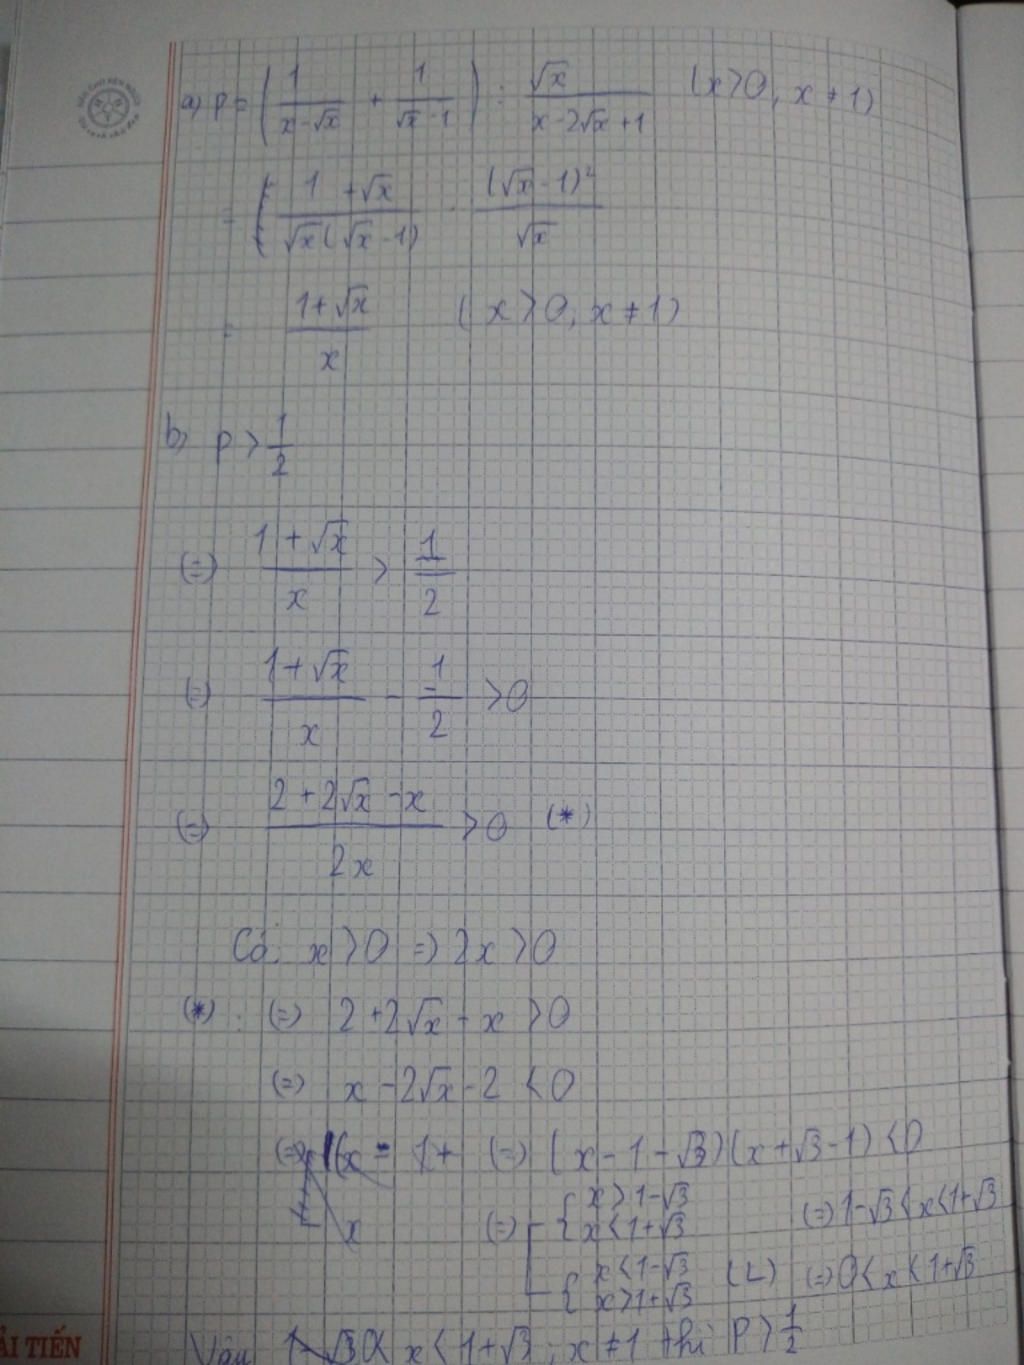 a) P = (1/(x-√x) + 1/(√x-1)) : √x/(x-2√x+1) (x>0, x≠1)
= (1+√x)/(√x(√x-1)) · (√x-1)²/√x
= (1+√x)/x (x>0, x≠1)
b) P > 1/2
(=) (1+√x)/x > 1/2
(=) (1+√x)/x - 1/2 > 0
(=) (2+2√x-x)/2x > 0 (*)
Có: x>0 => 2x>0
(*) : (=) 2+2√x-x > 0
(=) x-2√x-2 < 0
(=) (x-1-√3)(x+√3-1) < 0
(=) [ { x>1-√3 x<1+√3 (=) 1-√3<x<1+√3
{ x<1-√3 x>1+√3 (L) (=) 0<x<1+√3
Vậy 0< x < 1+√3; x≠1 thì P > 1/2
ẢI TIẾN